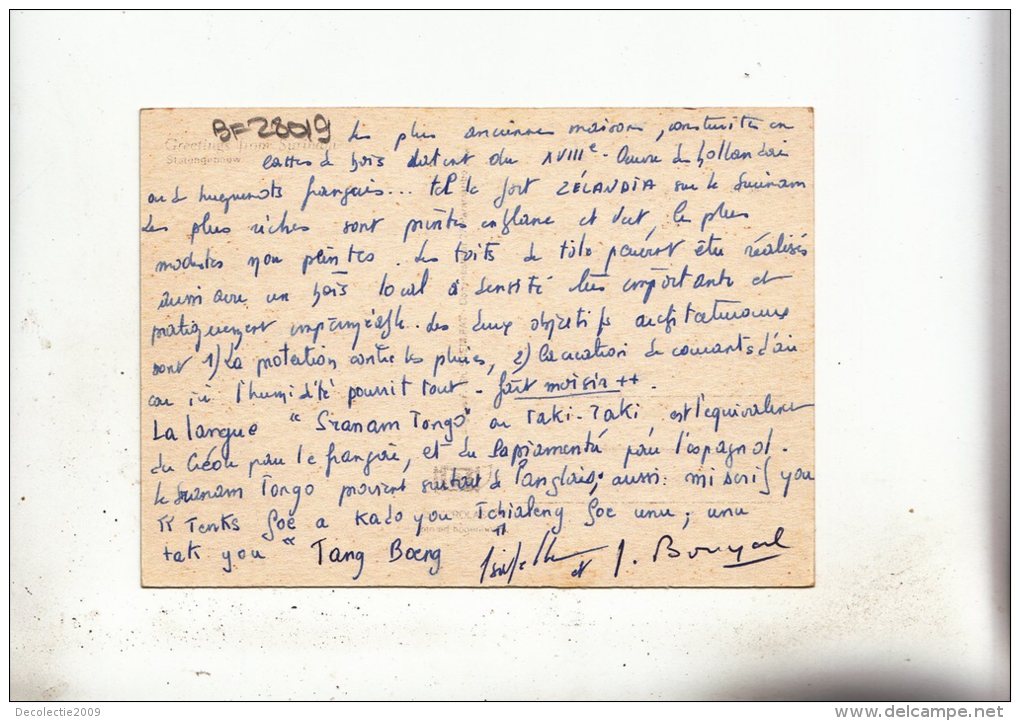 BF28019
Les plus anciennes maisons, construites en
Greetings from Surinam
lattes de bois datent du XVIIIe - Oeuvre de hollandais
ou de huguenots français... tel le fort ZÉLANDIA sur le Surinam
Les plus riches sont peintes en blanc et vert, les plus
modestes non peintes. Les toits de tôle peuvent être réalisés
aussi avec un bois local à densité très importante et
pratiquement imperméable. Les deux objectifs architecturaux
sont 1) La protection contre les pluies, 2) la création de courants d'air
car ici l'humidité pourrit tout - fait moisir ++.
La langue "Sranam Tongo" ou Taki-Taki, est l'equivalent
du Créole pour le français, et du Papiamentú pour l'espagnol.
Le Sranam Tongo provient surtout de l'anglais, aussi: mi you
Goe a you Goe unu, unu
tak you " Tang Boeng et J.
Decolectie2009
delcampe.net